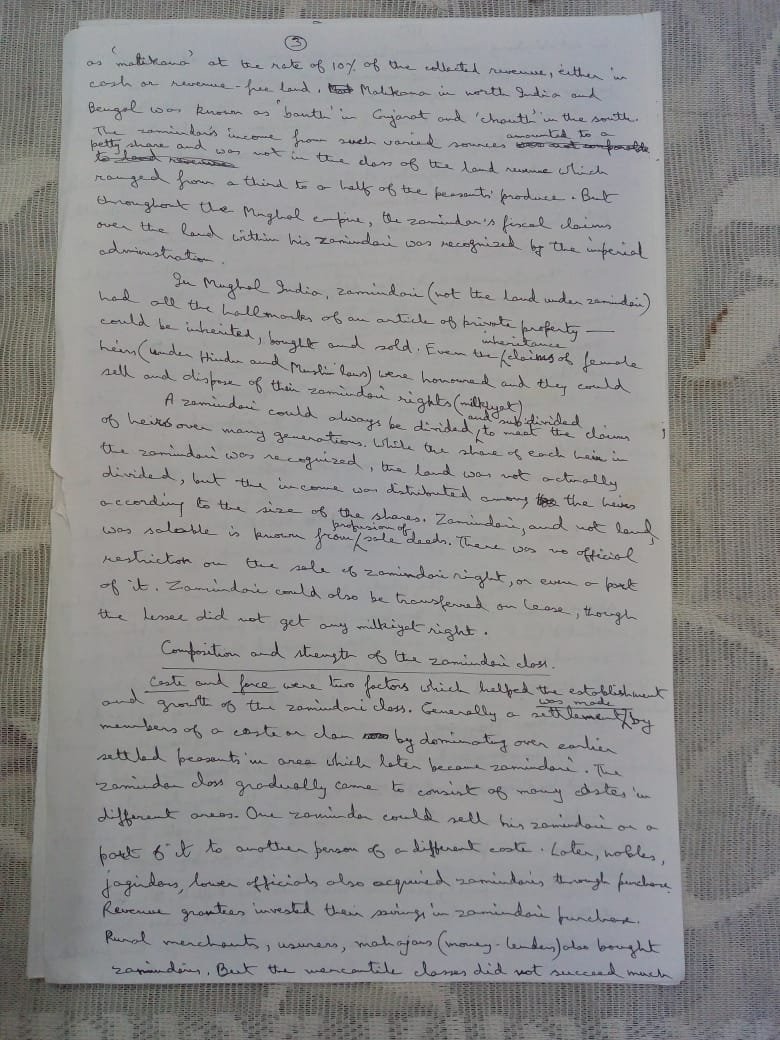 3
as 'malikana' at the rate of 10% of the collected revenue, either in
cash or revenue-free land. Malikana in north India and
Bengal was known as 'banth' in Gujarat and 'chauth' in the south.
The zamindar's income from such varied sources amounted to a
petty share and was not in the class of the land revenue which
ranged from a third to a half of the peasants' produce. But
throughout the Mughal empire, the zamindar's fiscal claims
over the land within his zamindari was recognized by the imperial
administration.
In Mughal India, zamindari (not the land under zamindari)
had all the hallmarks of an article of private property —
could be inherited, bought and sold. Even the inheritance claims of female
heirs (under Hindu and Muslim laws) were honoured and they could
sell and dispose of their zamindari rights (milkiyat)
A zamindari could always be divided and subdivided to meet the claims
of heirs over many generations. While the share of each heir in
the zamindari was recognized, the land was not actually
divided, but the income was distributed among the heirs
according to the size of the shares. Zamindari, and not land,
was saleable is known from profusion of sale deeds. There was no official
restriction on the sale of zamindari right, or even a part
of it. Zamindari could also be transferred on lease, though
the lessee did not get any milkiyat right.
Composition and strength of the zamindari class.
Caste and force were two factors which helped the establishment
and growth of the zamindari class. Generally a settlement was made by
members of a caste or clan by dominating over earlier
settled peasants in area which later became zamindari. The
zamindar class gradually came to consist of many castes in
different areas. One zamindar could sell his zamindari or a
part of it to another person of a different caste. Later, nobles,
jagirdars, lower officials also acquired zamindaris through purchase.
Revenue grantees invested their savings in zamindari purchase.
Rural merchants, usurers, mahajans (money-lenders) also bought
zamindaris. But the mercantile classes did not succeed much